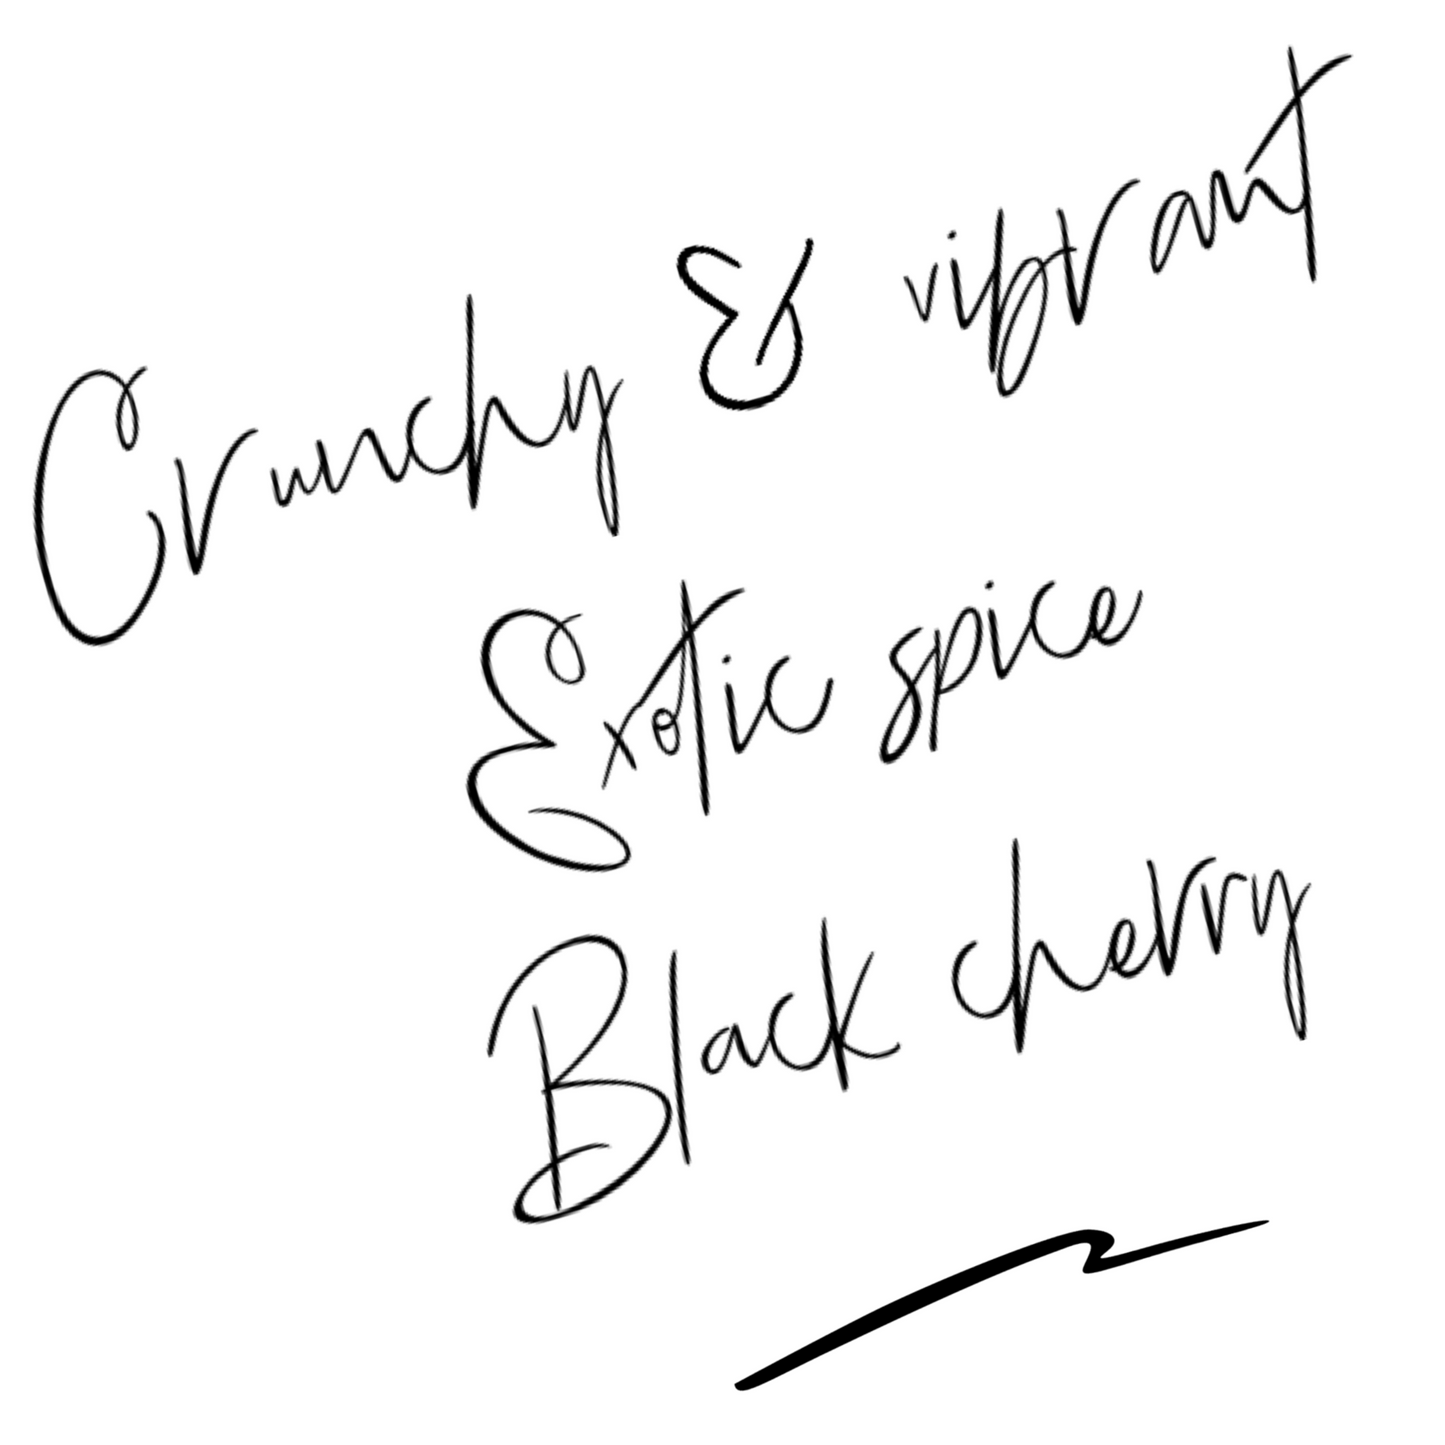 Crunchy & vibrant
Exotic spice
Black cherry